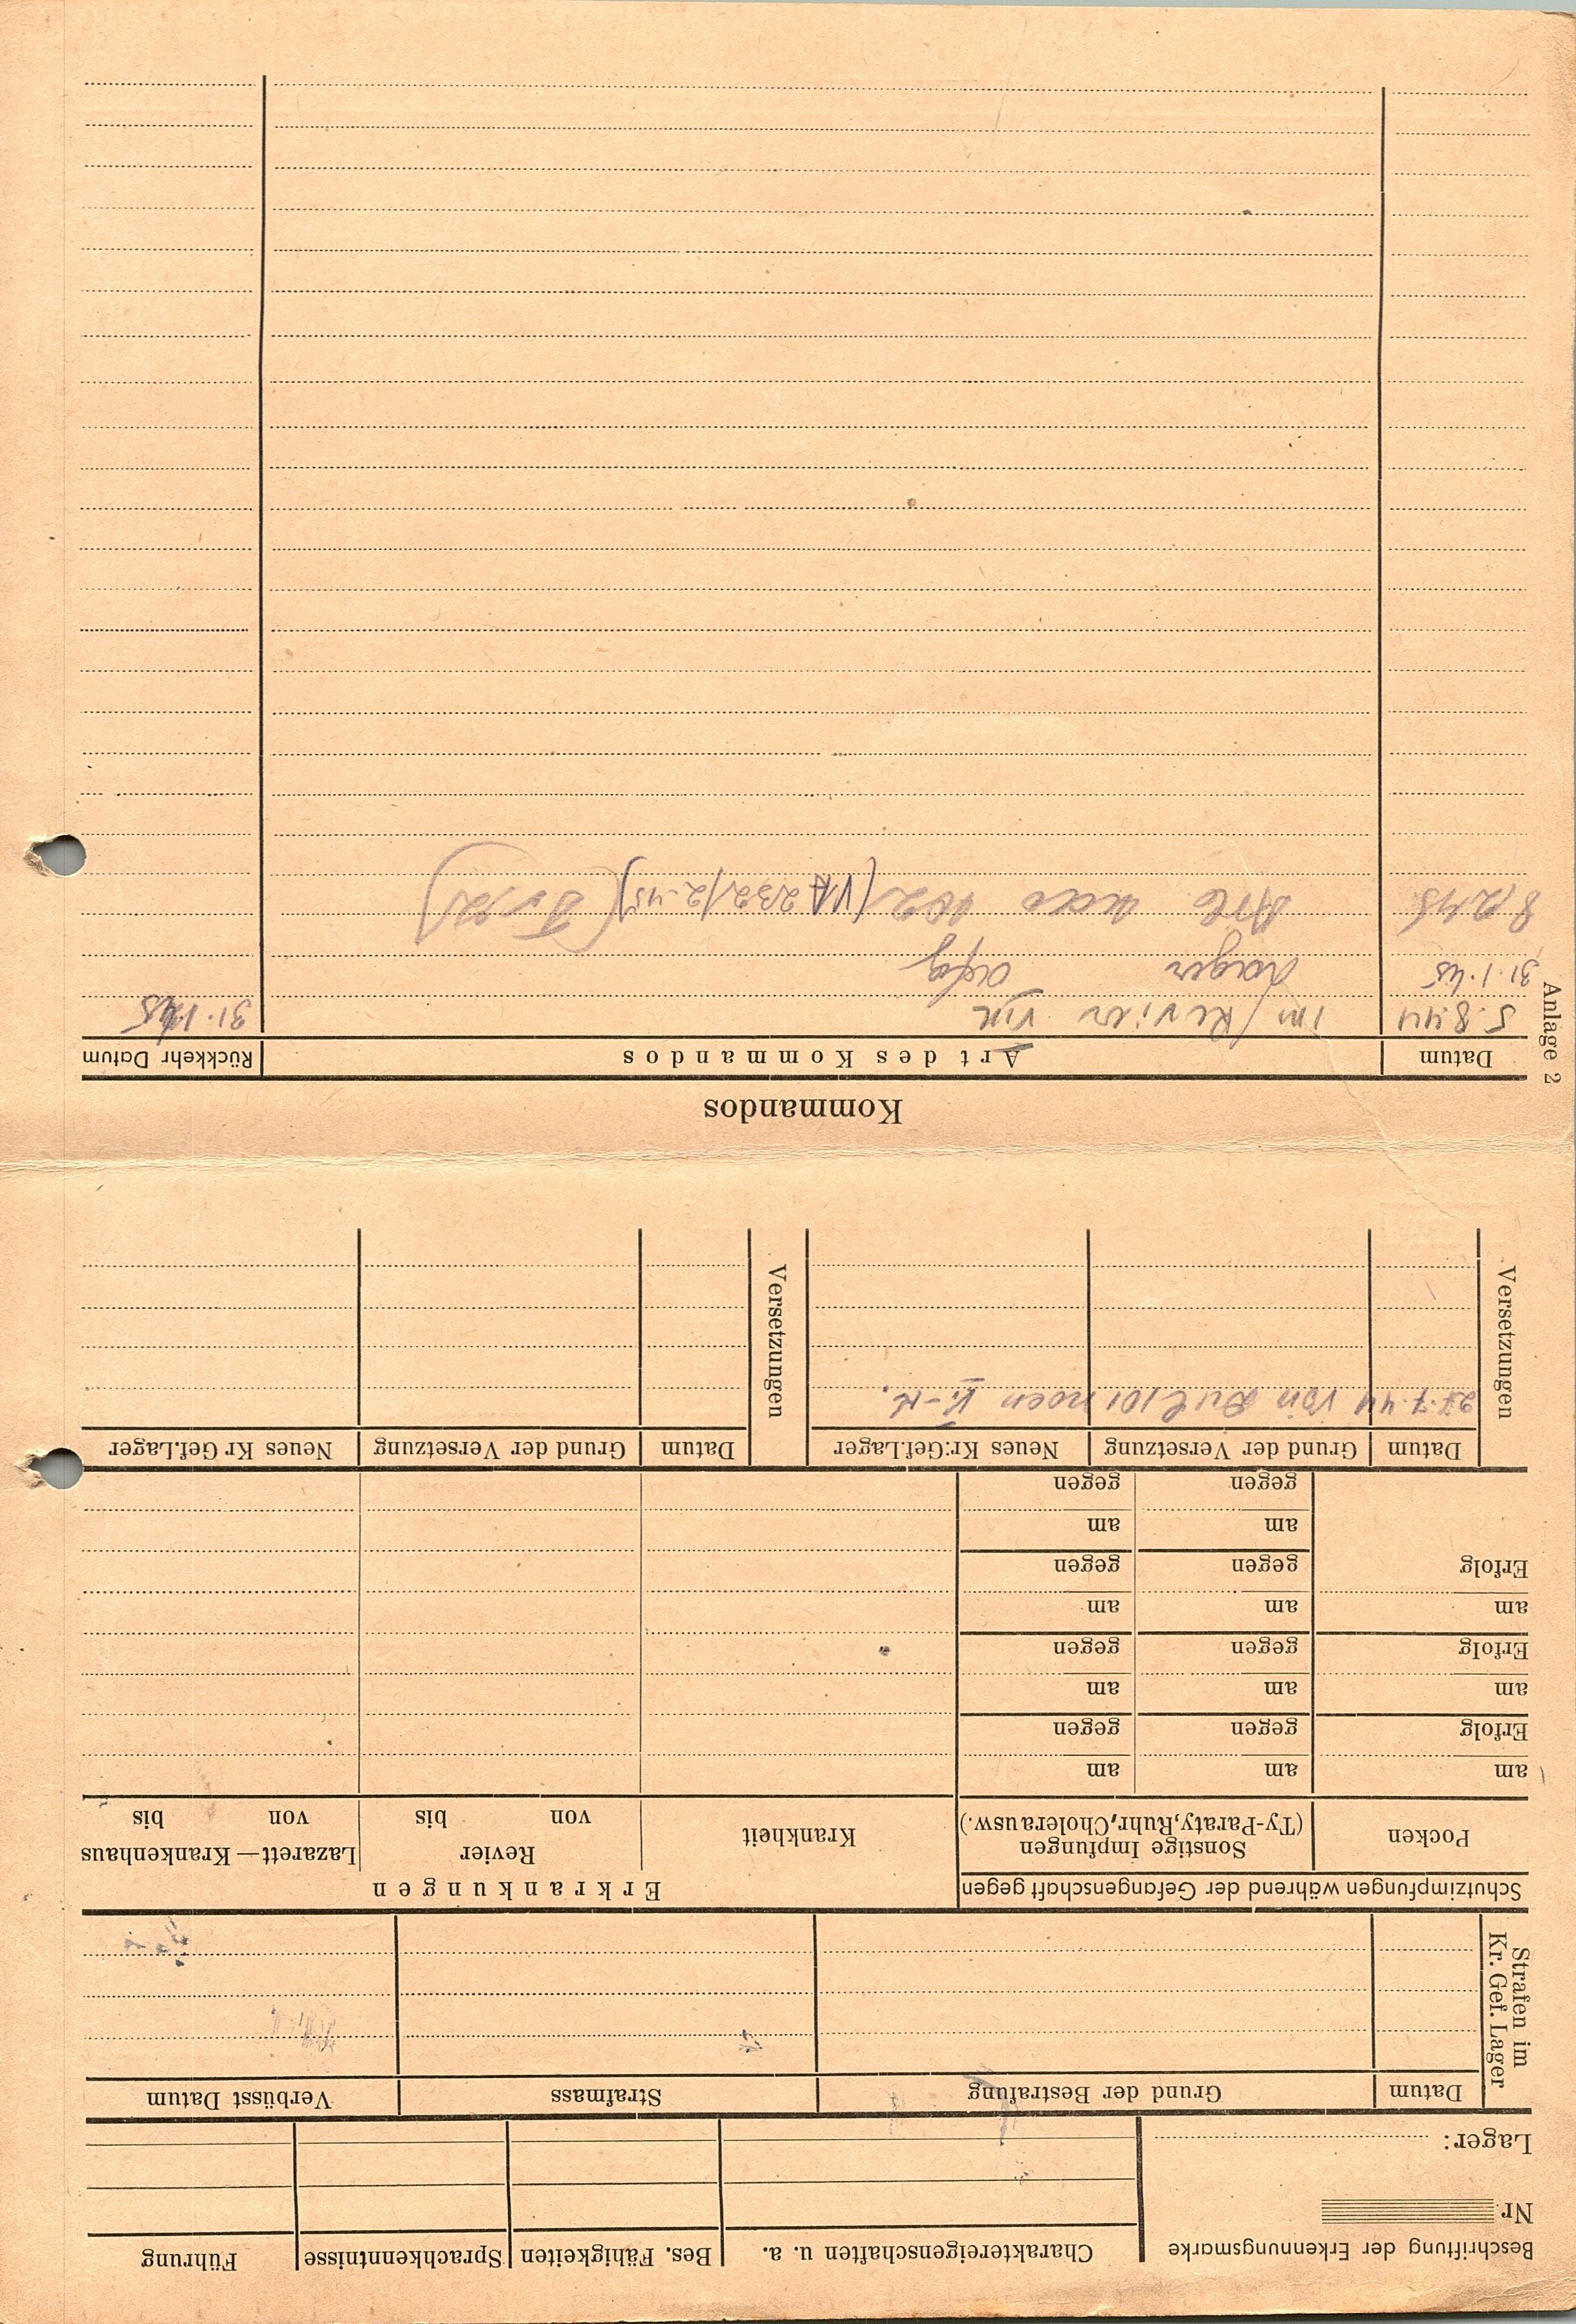 Beschriftung der Erkennungsmarke
Nr.
Lager:
Charaktereigenschaften u. a. Bes. Fähigkeiten Sprachkenntnisse Führung
Strafen im
Kr. Gef. Lager
Datum Grund der Bestrafung Strafmass Verbüsst Datum
Schutzimpfungen während der Gefangenschaft gegen
Erkrankungen
Pocken
Sonstige Impfungen
(Ty-Paraty,Ruhr,Cholera usw.)
Krankheit
Revier
von bis
Lazarett—Krankenhaus
von bis
am am am
Erfolg gegen gegen
am am am
Erfolg gegen gegen
am am am
Erfolg gegen gegen
am am
gegen gegen
Versetzungen
Datum Grund der Versetzung Neues Kr:Gef.Lager
von 101 nach
Versetzungen
Datum Grund der Versetzung Neues Kr Gef.Lager
Kommandos
Anlage 2
Datum Art des Kommandos Rückkehr Datum
5.8.44 im Revier 31.1.45
31.1.45 Lager
8.2.45 102